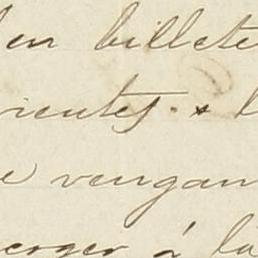 en billete
rientes. &
e vengan
erger á la